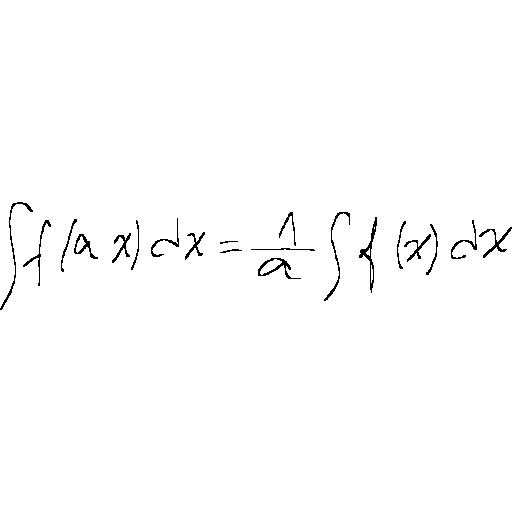 ∫f(ax)dx = \frac{1}{a} ∫f(x)dx